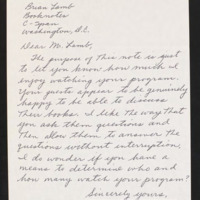 Brian Lamb
Booknotes
C-Span
Washington, D.C.
Dear Mr. Lamb,
The purpose of this note is just
to let you know how much I
enjoy watching your program.
Your guests appear to be genuinely
happy to be able to discuss
their books. I like the way that
you ask them questions and
then allow them to answer the
questions without interruption.
I do wonder if you have a
means to determine who and
how many watch your program?
Sincerely yours,